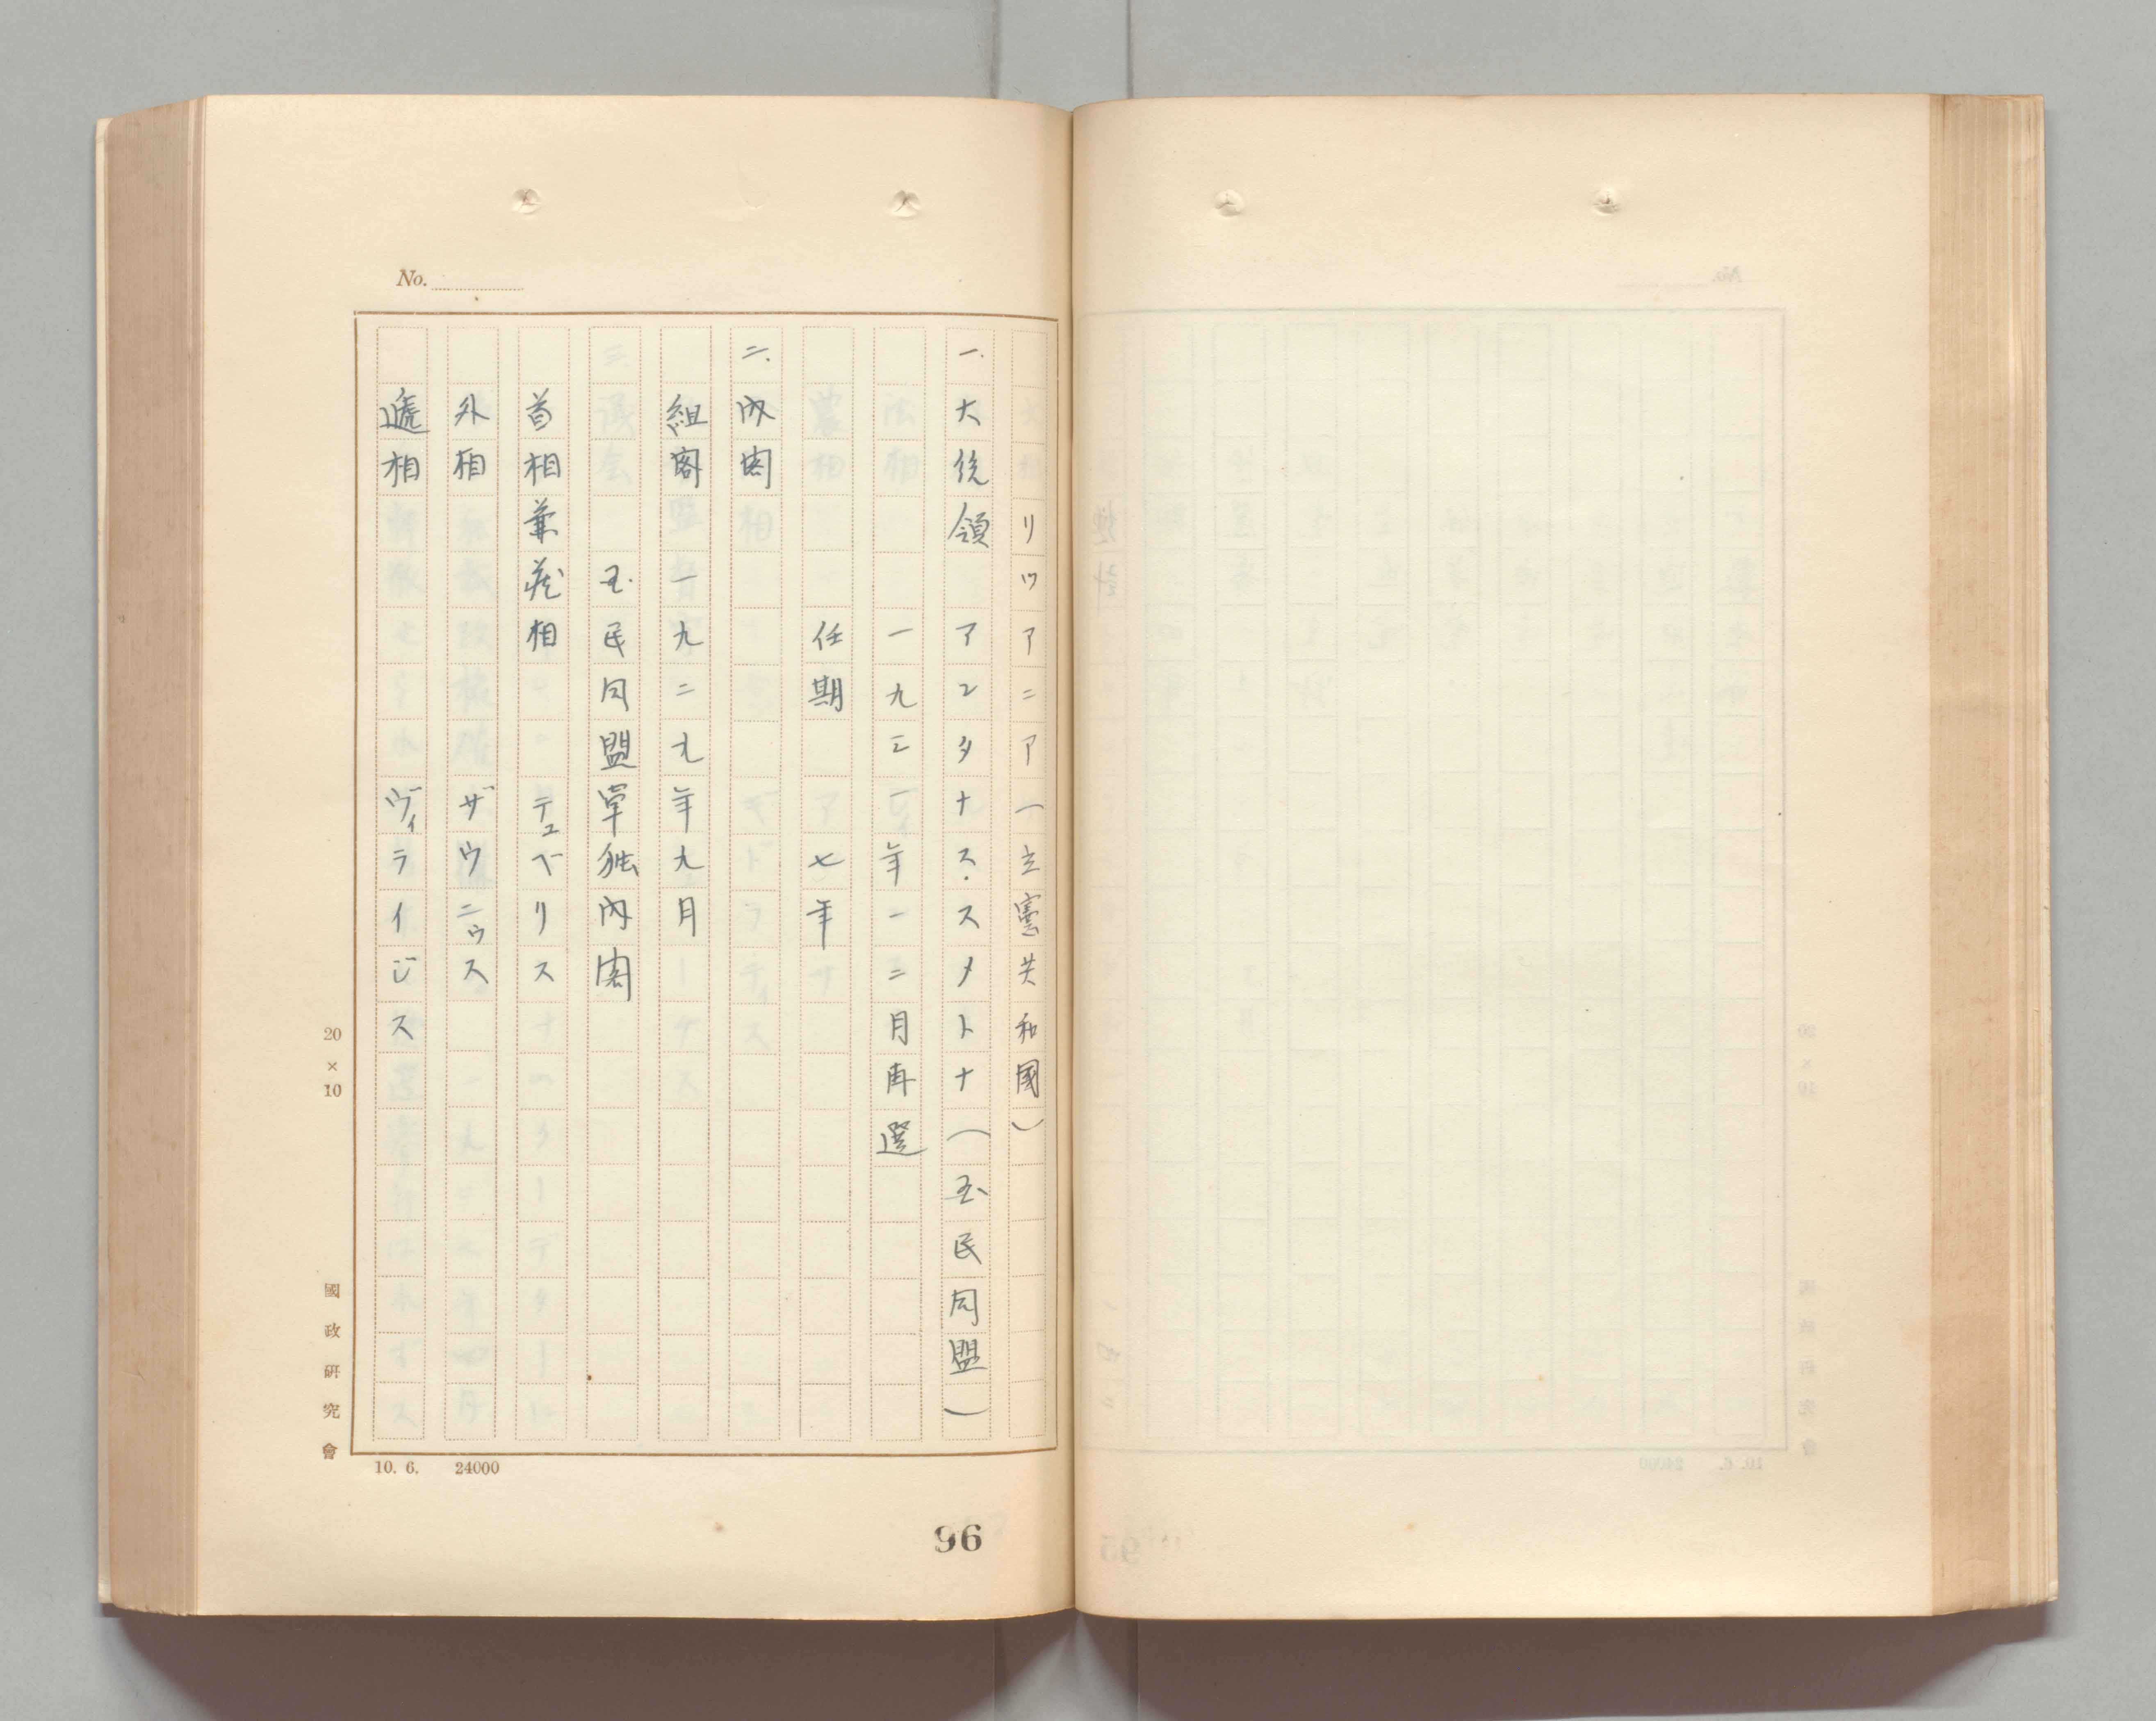 No.
リツアニア(立憲共和國)
一.大統領 アンタナス.スメトナ(玉民同盟)
一九三一年一二月再選
任期 七年
二.内閣
組閣 一九二九年九月
玉民同盟單独内閣
首相兼蔵相 テュベリス
外相 ザウニウス
遞相 ヴィライジス
20×10
國政研究會
10. 6. 24000
96